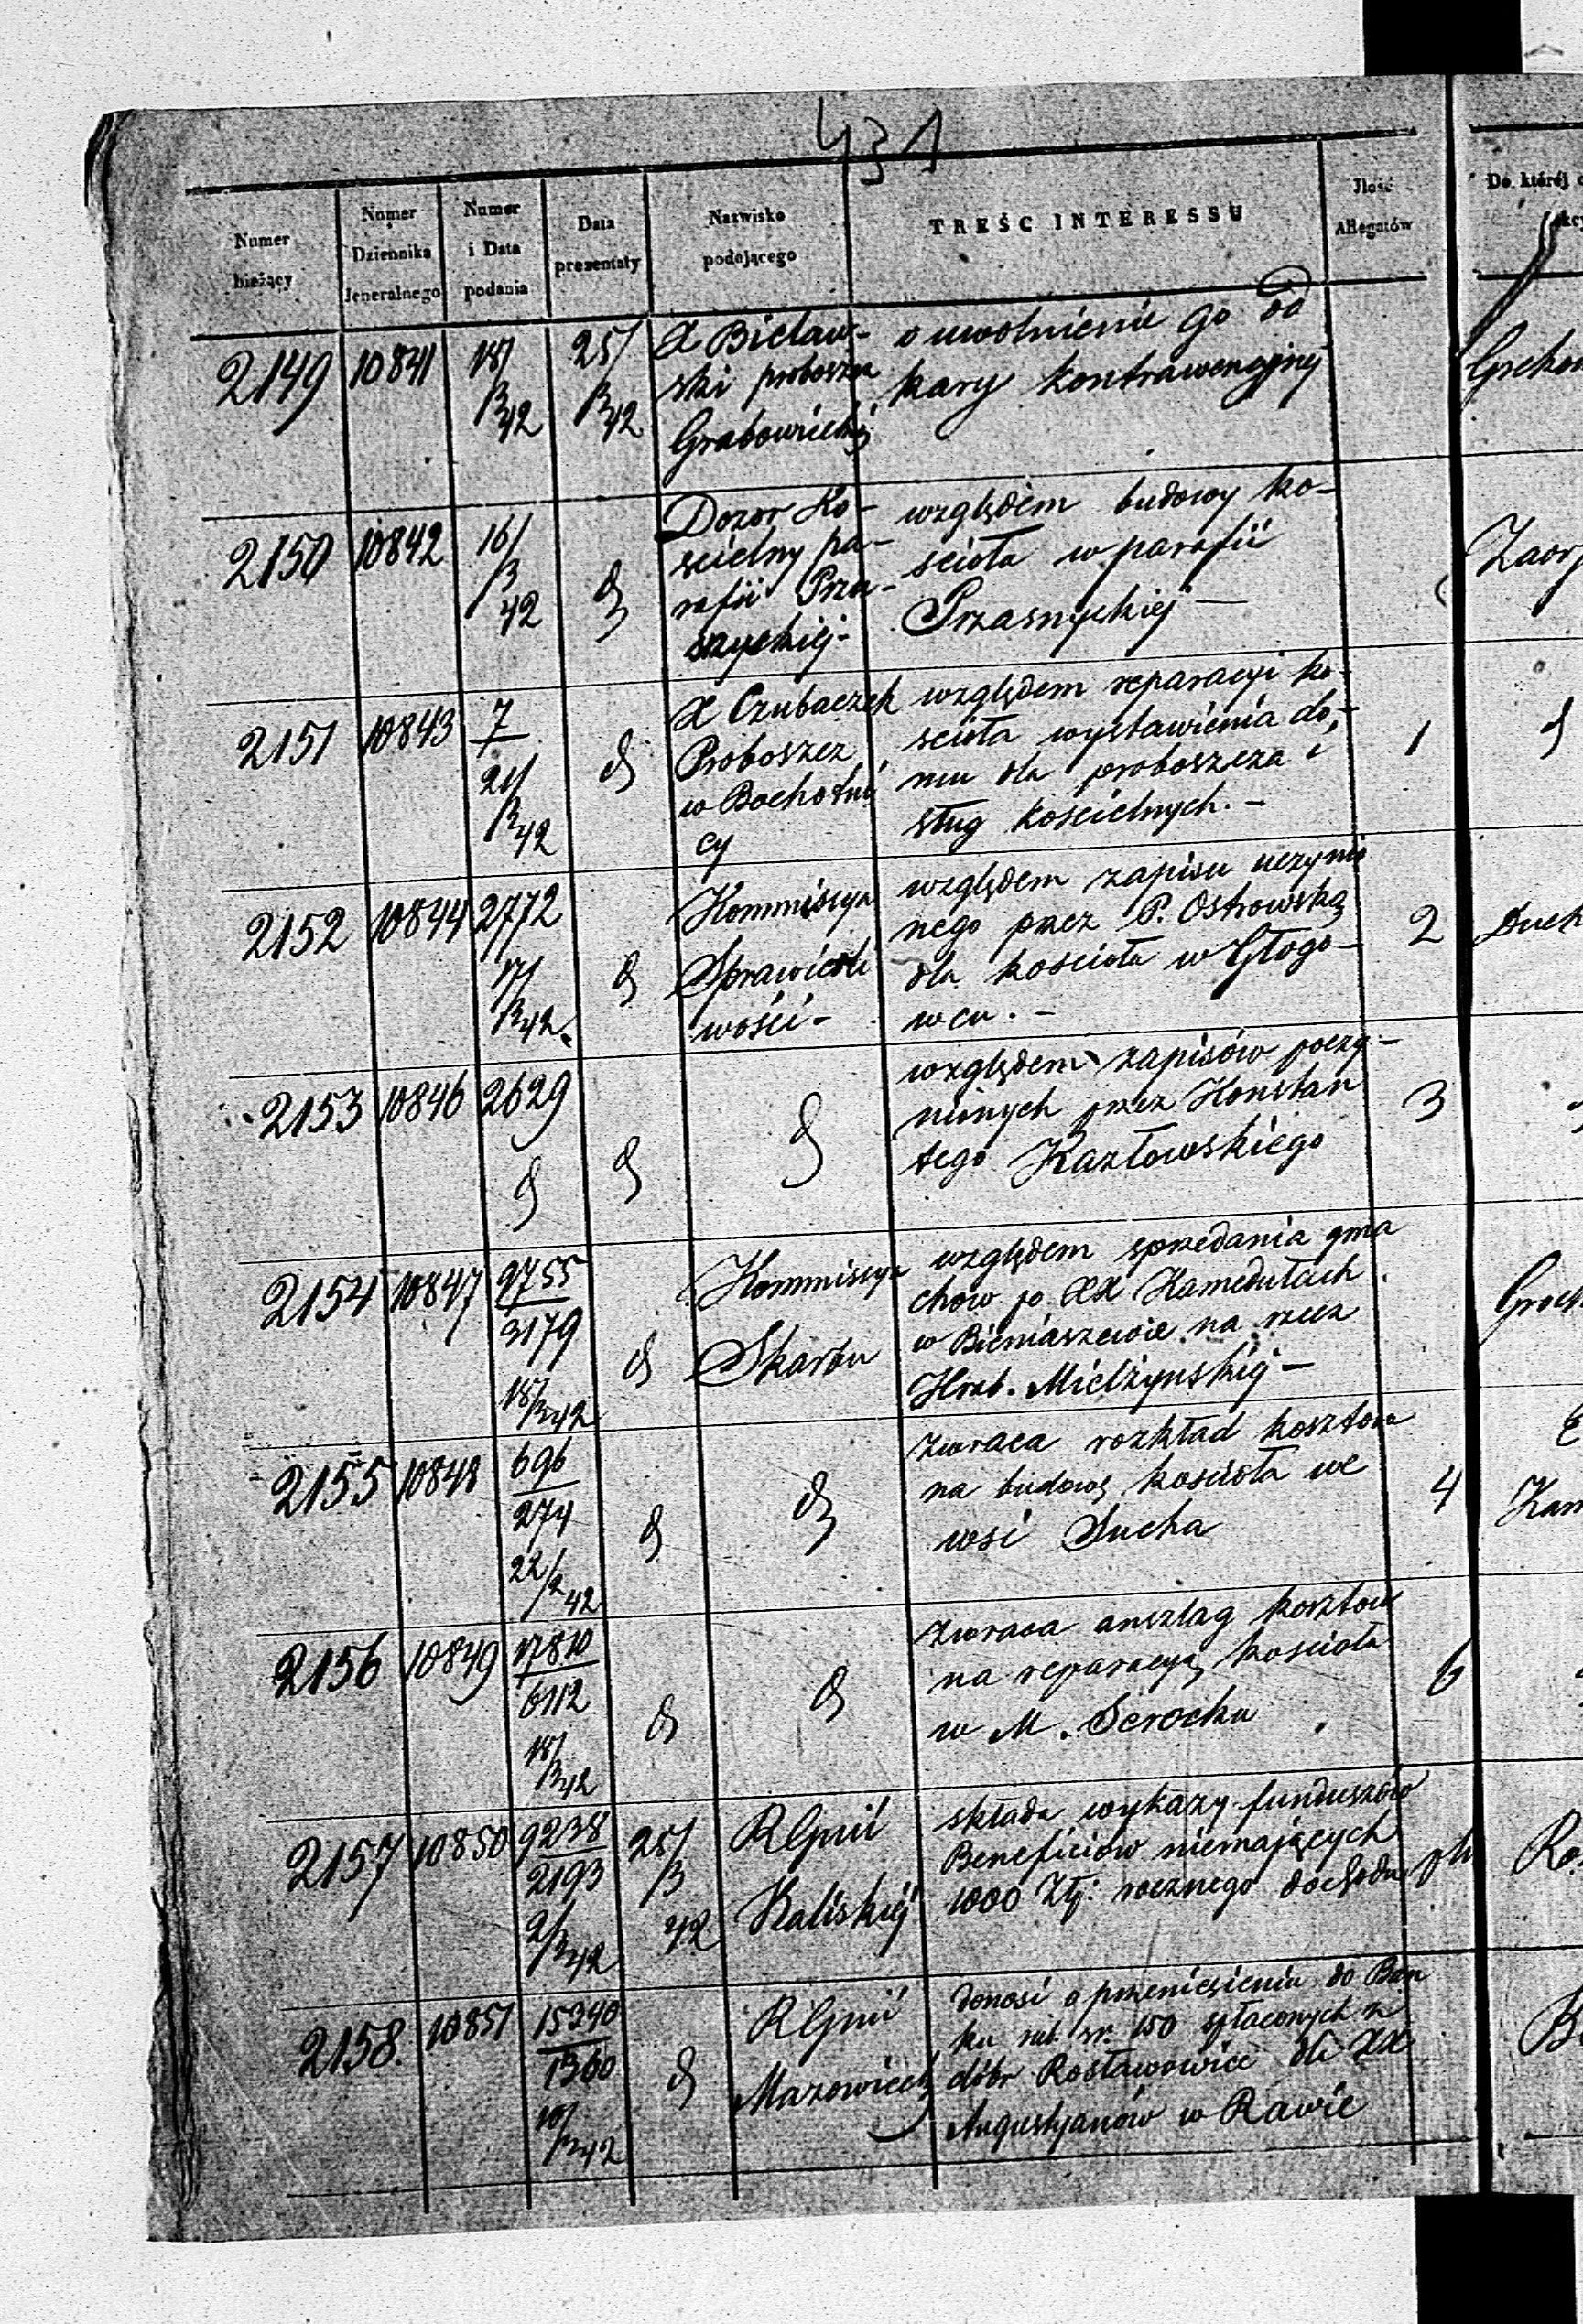 431
Numer bieżący
Numer Dziennika Jeneralnego
Numer i Data podania
Data prezentaty
Nazwisko podającego
TREŚC INTERESSU
Ilość Allegatów
Do której
2149 10841 18/3 42 25/3 42
X Bielaw-
ski proboszcz
Grabowiecki
o uwolnienie go od
kary kontrawencyjnej
2150 10842 16/3 42 d
Dozor Ko-
scielny pa-
rafii Prza-
snyskiej-
względem budowy ko-
scioła w parafii
Przasnyskiej —
2151 10843 7 21/3 42 d
X Czubaczek
Proboszcz
w Bochotni
cy
względem reparacyi ko-
scioła wystawienia do-
mu dla proboszcza i
sług kościelnych. -
1 d
2152 10844 2772 17/3 42. d
Kommissya
Sprawiedli
wości -
względem zapisu uczynio
nego przez P. Ostrowską
dla kościoła w Głogo-
wcu. -
2 Duch
2153 10846 2629 d d d
względem zapisów poczy-
nionych przez Konstan
tego Kazłowskiego
3
2154 10847 9755/3179 18/3 42 d
Kommissya
Skarbu
względem sprzedania gma
chow po XX Kamedułach
w Bieniaszewie na rzecz
Hrab. Mielżynskiej —
2155 10848 696/274 22/2 42 d d
zwraca rozkład kosztow
na budowę kościoła we
wsi Sucha
4 Kam
2156 10849 17810/6112 18/3 42 d d
zwraca anszlag kosztow
na reparacyą kościoła
w M. Serocku
6
2157 10850 9238/2193 2/3 42 25/3 42
RGnii
Kaliskiej
składa wykazy funduszów
Beneficiów niemających
1000 Złp: rocznego dochodu
2158. 10851 15340/1360 10/3 42 d
RGnii
Mazowieck
donosi o przeniesieniu do Ban
ku rub. sr. 150 spłaconych z
dóbr Rosławowice dla XX
Augustyanów w Rawie